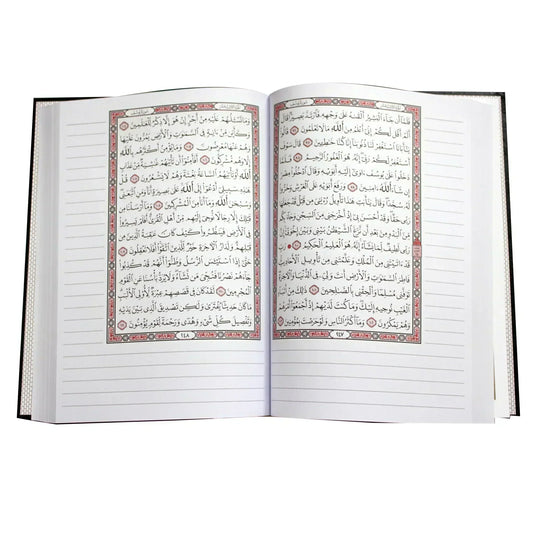 فَلَمَّآ أَن جَآءَ ٱلۡبَشِيرُ أَلۡقَىٰهُ عَلَىٰ وَجۡهِهِۦ فَٱرۡتَدَّ بَصِيرٗاۖ قَالَ
أَلَمۡ أَقُل لَّكُمۡ إِنِّيٓ أَعۡلَمُ مِنَ ٱللَّهِ مَا لَا تَعۡلَمُونَ ٩٦ قَالُواْ
يَٰٓأَبَانَا ٱسۡتَغۡفِرۡ لَنَا ذُنُوبَنَآ إِنَّا كُنَّا خَٰطِـِٔينَ ٩٧ قَالَ سَوۡفَ
أَسۡتَغۡفِرُ لَكُمۡ رَبِّيٓۖ إِنَّهُۥ هُوَ ٱلۡغَفُورُ ٱلرَّحِيمُ ٩٨ فَلَمَّا
دَخَلُواْ عَلَىٰ يُوسُفَ ءَاوَىٰٓ إِلَيۡهِ أَبَوَيۡهِ وَقَالَ ٱدۡخُلُواْ مِصۡرَ
إِن شَآءَ ٱللَّهُ ءَامِنِينَ ٩٩ وَرَفَعَ أَبَوَيۡهِ عَلَى ٱلۡعَرۡشِ وَخَرُّواْ
لَهُۥ سُجَّدٗاۖ وَقَالَ يَٰٓأَبَتِ هَٰذَا تَأۡوِيلُ رُءۡيَٰيَ مِن قَبۡلُ قَدۡ جَعَلَهَا
رَبِّي حَقّٗاۖ وَقَدۡ أَحۡسَنَ بِيٓ إِذۡ أَخۡرَجَنِي مِنَ ٱلسِّجۡنِ وَجَآءَ بِكُم
مِّنَ ٱلۡبَدۡوِ مِنۢ بَعۡدِ أَن نَّزَغَ ٱلشَّيۡطَٰنُ بَيۡنِي وَبَيۡنَ إِخۡوَتِيٓۚ إِنَّ
رَبِّي لَطِيفٞ لِّمَا يَشَآءُۚ إِنَّهُۥ هُوَ ٱلۡعَلِيمُ ٱلۡحَكِيمُ ١٠٠ رَبِّ
قَدۡ ءَاتَيۡتَنِي مِنَ ٱلۡمُلۡكِ وَعَلَّمۡتَنِي مِن تَأۡوِيلِ ٱلۡأَحَادِيثِۚ
فَاطِرَ ٱلسَّمَٰوَٰتِ وَٱلۡأَرۡضِ أَنتَ وَلِيِّۦ فِي ٱلدُّنۡيَا وَٱلۡأٓخِرَةِۖ
تَوَفَّنِي مُسۡلِمٗا وَأَلۡحِقۡنِي بِٱلصَّٰلِحِينَ ١٠١ ذَٰلِكَ مِنۡ أَنۢبَآءِ
ٱلۡغَيۡبِ نُوحِيهِ إِلَيۡكَۖ وَمَا كُنتَ لَدَيۡهِمۡ إِذۡ أَجۡمَعُوٓاْ أَمۡرَهُمۡ
وَهُمۡ يَمۡكُرُونَ ١٠٢ وَمَآ أَكۡثَرُ ٱلنَّاسِ وَلَوۡ حَرَصۡتَ بِمُؤۡمِنِينَ ١٠٣
٢٤٧
وَمَا تَسۡـَٔلُهُمۡ عَلَيۡهِ مِنۡ أَجۡرٍۚ إِنۡ هُوَ إِلَّا ذِكۡرٞ لِّلۡعَٰلَمِينَ ١٠٤
وَكَأَيِّن مِّنۡ ءَايَةٖ فِي ٱلسَّمَٰوَٰتِ وَٱلۡأَرۡضِ يَمُرُّونَ عَلَيۡهَا
وَهُمۡ عَنۡهَا مُعۡرِضُونَ ١٠٥ وَمَا يُؤۡمِنُ أَكۡثَرُهُم بِٱللَّهِ
إِلَّا وَهُم مُّشۡرِكُونَ ١٠٦ أَفَأَمِنُوٓاْ أَن تَأۡتِيَهُمۡ غَٰشِيَةٞ مِّنۡ عَذَابِ
ٱللَّهِ أَوۡ تَأۡتِيَهُمُ ٱلسَّاعَةُ بَغۡتَةٗ وَهُمۡ لَا يَشۡعُرُونَ ١٠٧ قُلۡ
هَٰذِهِۦ سَبِيلِيٓ أَدۡعُوٓاْ إِلَى ٱللَّهِۚ عَلَىٰ بَصِيرَةٍ أَنَا۠ وَمَنِ ٱتَّبَعَنِيۖ
وَسُبۡحَٰنَ ٱللَّهِ وَمَآ أَنَا۠ مِنَ ٱلۡمُشۡرِكِينَ ١٠٨ وَمَآ أَرۡسَلۡنَا مِن
قَبۡلِكَ إِلَّا رِجَالٗا نُّوحِيٓ إِلَيۡهِم مِّنۡ أَهۡلِ ٱلۡقُرَىٰٓۗ أَفَلَمۡ يَسِيرُواْ
فِي ٱلۡأَرۡضِ فَيَنظُرُواْ كَيۡفَ كَانَ عَٰقِبَةُ ٱلَّذِينَ مِن
قَبۡلِهِمۡۗ وَلَدَارُ ٱلۡأٓخِرَةِ خَيۡرٞ لِّلَّذِينَ ٱتَّقَوۡاْۚ أَفَلَا تَعۡقِلُونَ ١٠٩
حَتَّىٰٓ إِذَا ٱسۡتَيۡـَٔسَ ٱلرُّسُلُ وَظَنُّوٓاْ أَنَّهُمۡ قَدۡ كُذِبُواْ
جَآءَهُمۡ نَصۡرُنَا فَنُجِّيَ مَن نَّشَآءُۖ وَلَا يُرَدُّ بَأۡسُنَا عَنِ ٱلۡقَوۡمِ
ٱلۡمُجۡرِمِينَ ١١٠ لَقَدۡ كَانَ فِي قَصَصِهِمۡ عِبۡرَةٞ لِّأُوْلِي ٱلۡأَلۡبَٰبِۗ
مَا كَانَ حَدِيثٗا يُفۡتَرَىٰ وَلَٰكِن تَصۡدِيقَ ٱلَّذِي بَيۡنَ يَدَيۡهِ
وَتَفۡصِيلَ كُلِّ شَيۡءٖ وَهُدٗى وَرَحۡمَةٗ لِّقَوۡمٖ يُؤۡمِنُونَ ١١١
٢٤٨